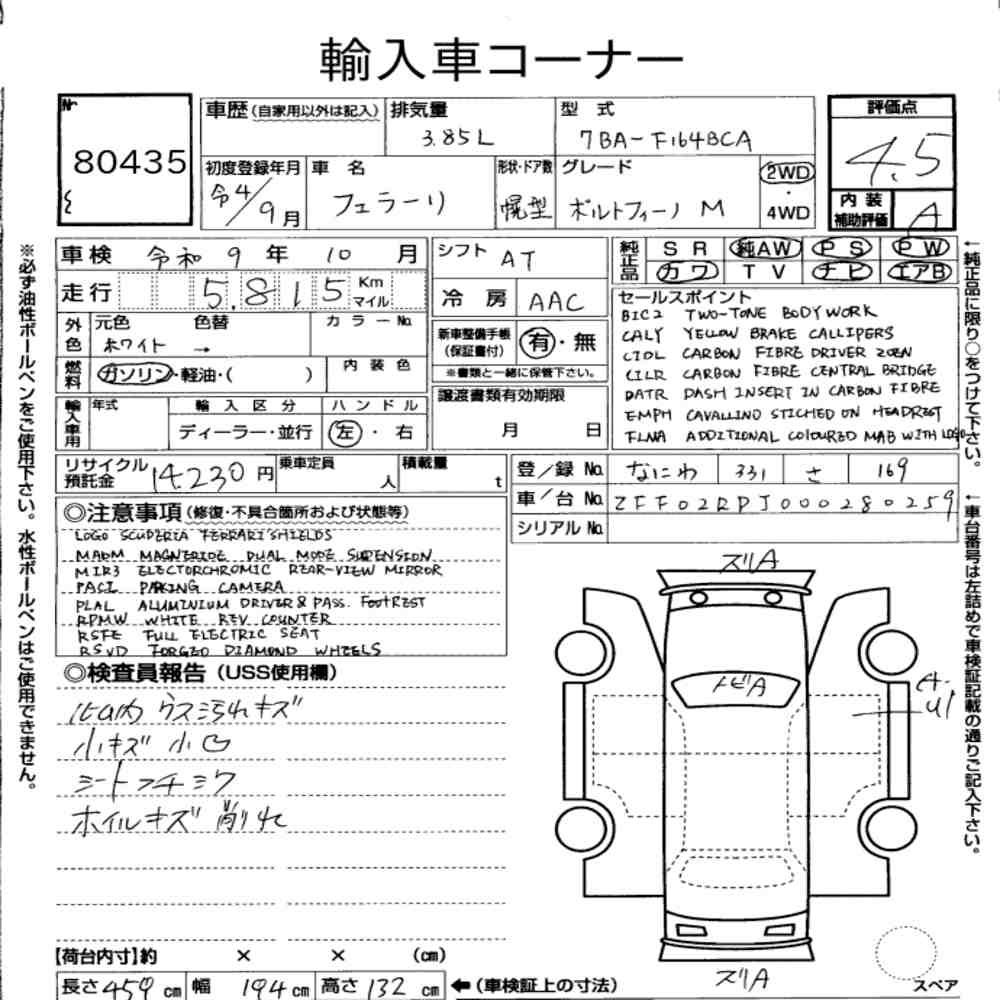 輸入車コーナー
№
80435
車歴(自家用以外は記入)
排気量 3.85L
型式 7BA-F164BCA
評価点 4.5
初度登録年月 令4/9月
車名 フェラーリ
形状・ドア数 幌型
グレード ポルトフィーノ M
2WD・4WD
内装補助評価 A
車検 令和 9年 10月
シフト AT
純正品 SR 純AW PS PW
カワ TV ナビ エアB
走行 5,815 Km マイル
冷房 AAC
外色 元色 ホワイト → 色替
カラーNo.
新車整備手帳(保証書付) 有・無
※書類と一緒に保管下さい。
燃料 ガソリン・軽油・( )
内装色
輸入車用 年式
輸入区分 ディーラー・並行
ハンドル 左・右
譲渡書類有効期限 月 日
セールスポイント
BIC2 TWO-TONE BODYWORK
CALY YELLOW BRAKE CALLIPERS
CIDL CARBON FIBRE DRIVER ZOEN
CILR CARBON FIBRE CENTRAL BRIDGE
DATR DASH INSERT IN CARBON FIBRE
EMPH CAVALLINO STICHED ON HEADREST
FLNA ADDITIONAL COLOURED MAB WITH LOGO
リサイクル預託金 14230円
乗車定員 人
積載量 t
登録No. なにわ 331 さ 169
車台No. ZFF02RPJ000280259
シリアルNo.
◎注意事項(修復・不具合箇所および状態等)
LOGO SCUDERIA FERRARI SHIELDS
MADM MAGNERIDE DUAL MODE SUPENSION
MIR3 ELECTORCHROMIC REAR-VIEW MIRROR
PAC1 PAKING CAMERA
PLAL ALUMINIUM DRIVER & PASS. FOOTREST
RPMW WHITE REV COUNTER
RSFE FULL ELECTRIC SEAT
RSVD FORGED DIAMOND WHEELS
◎検査員報告(USS使用欄)
内 ウス汚れキズ
小キズ 小凹
シートフチ シワ
ホイルキズ 削れ
ズリA
トビA
A・U1
ズリA
スペア
【荷台内寸】約 × × (cm)
長さ 459cm 幅 194cm 高さ 132cm ←(車検証上の寸法)
※必ず油性ボールペンをご使用下さい。水性ボールペンはご使用できません。
←純正品に限り○をつけて下さい。
←車台番号は左詰めで車検証記載の通りご記入下さい。